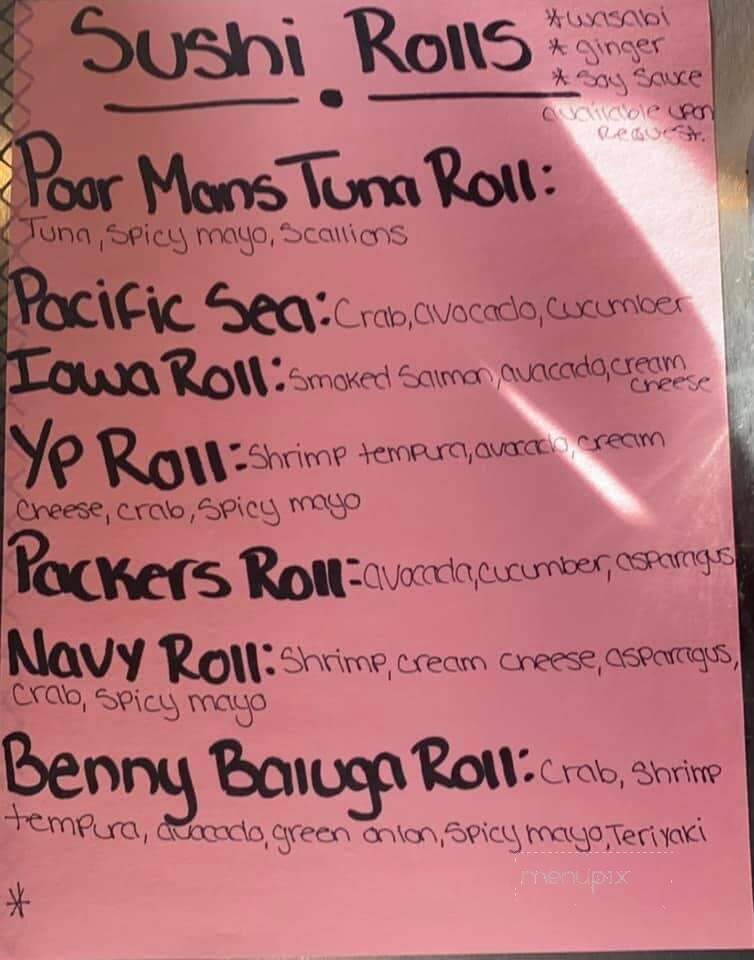 Sushi Rolls
*wasabi
* ginger
* Soy Sauce
available upon
Request.
Poor Mans Tuna Roll:
Tuna, Spicy mayo, Scallions
Pacific Sea: Crab, avocado, Cucumber
Iowa Roll: Smoked Salmon, avacado, cream
cheese
YP Roll: Shrimp tempura, avocado, cream
cheese, crab, Spicy mayo
Packers Roll: avocada, cucumber, asparagus
Navy Roll: Shrimp, cream cheese, asparagus,
Crab, Spicy mayo
Benny Baluga Roll: Crab, Shrimp
tempura, avocado, green onion, Spicy mayo, Teriyaki
*
menupix